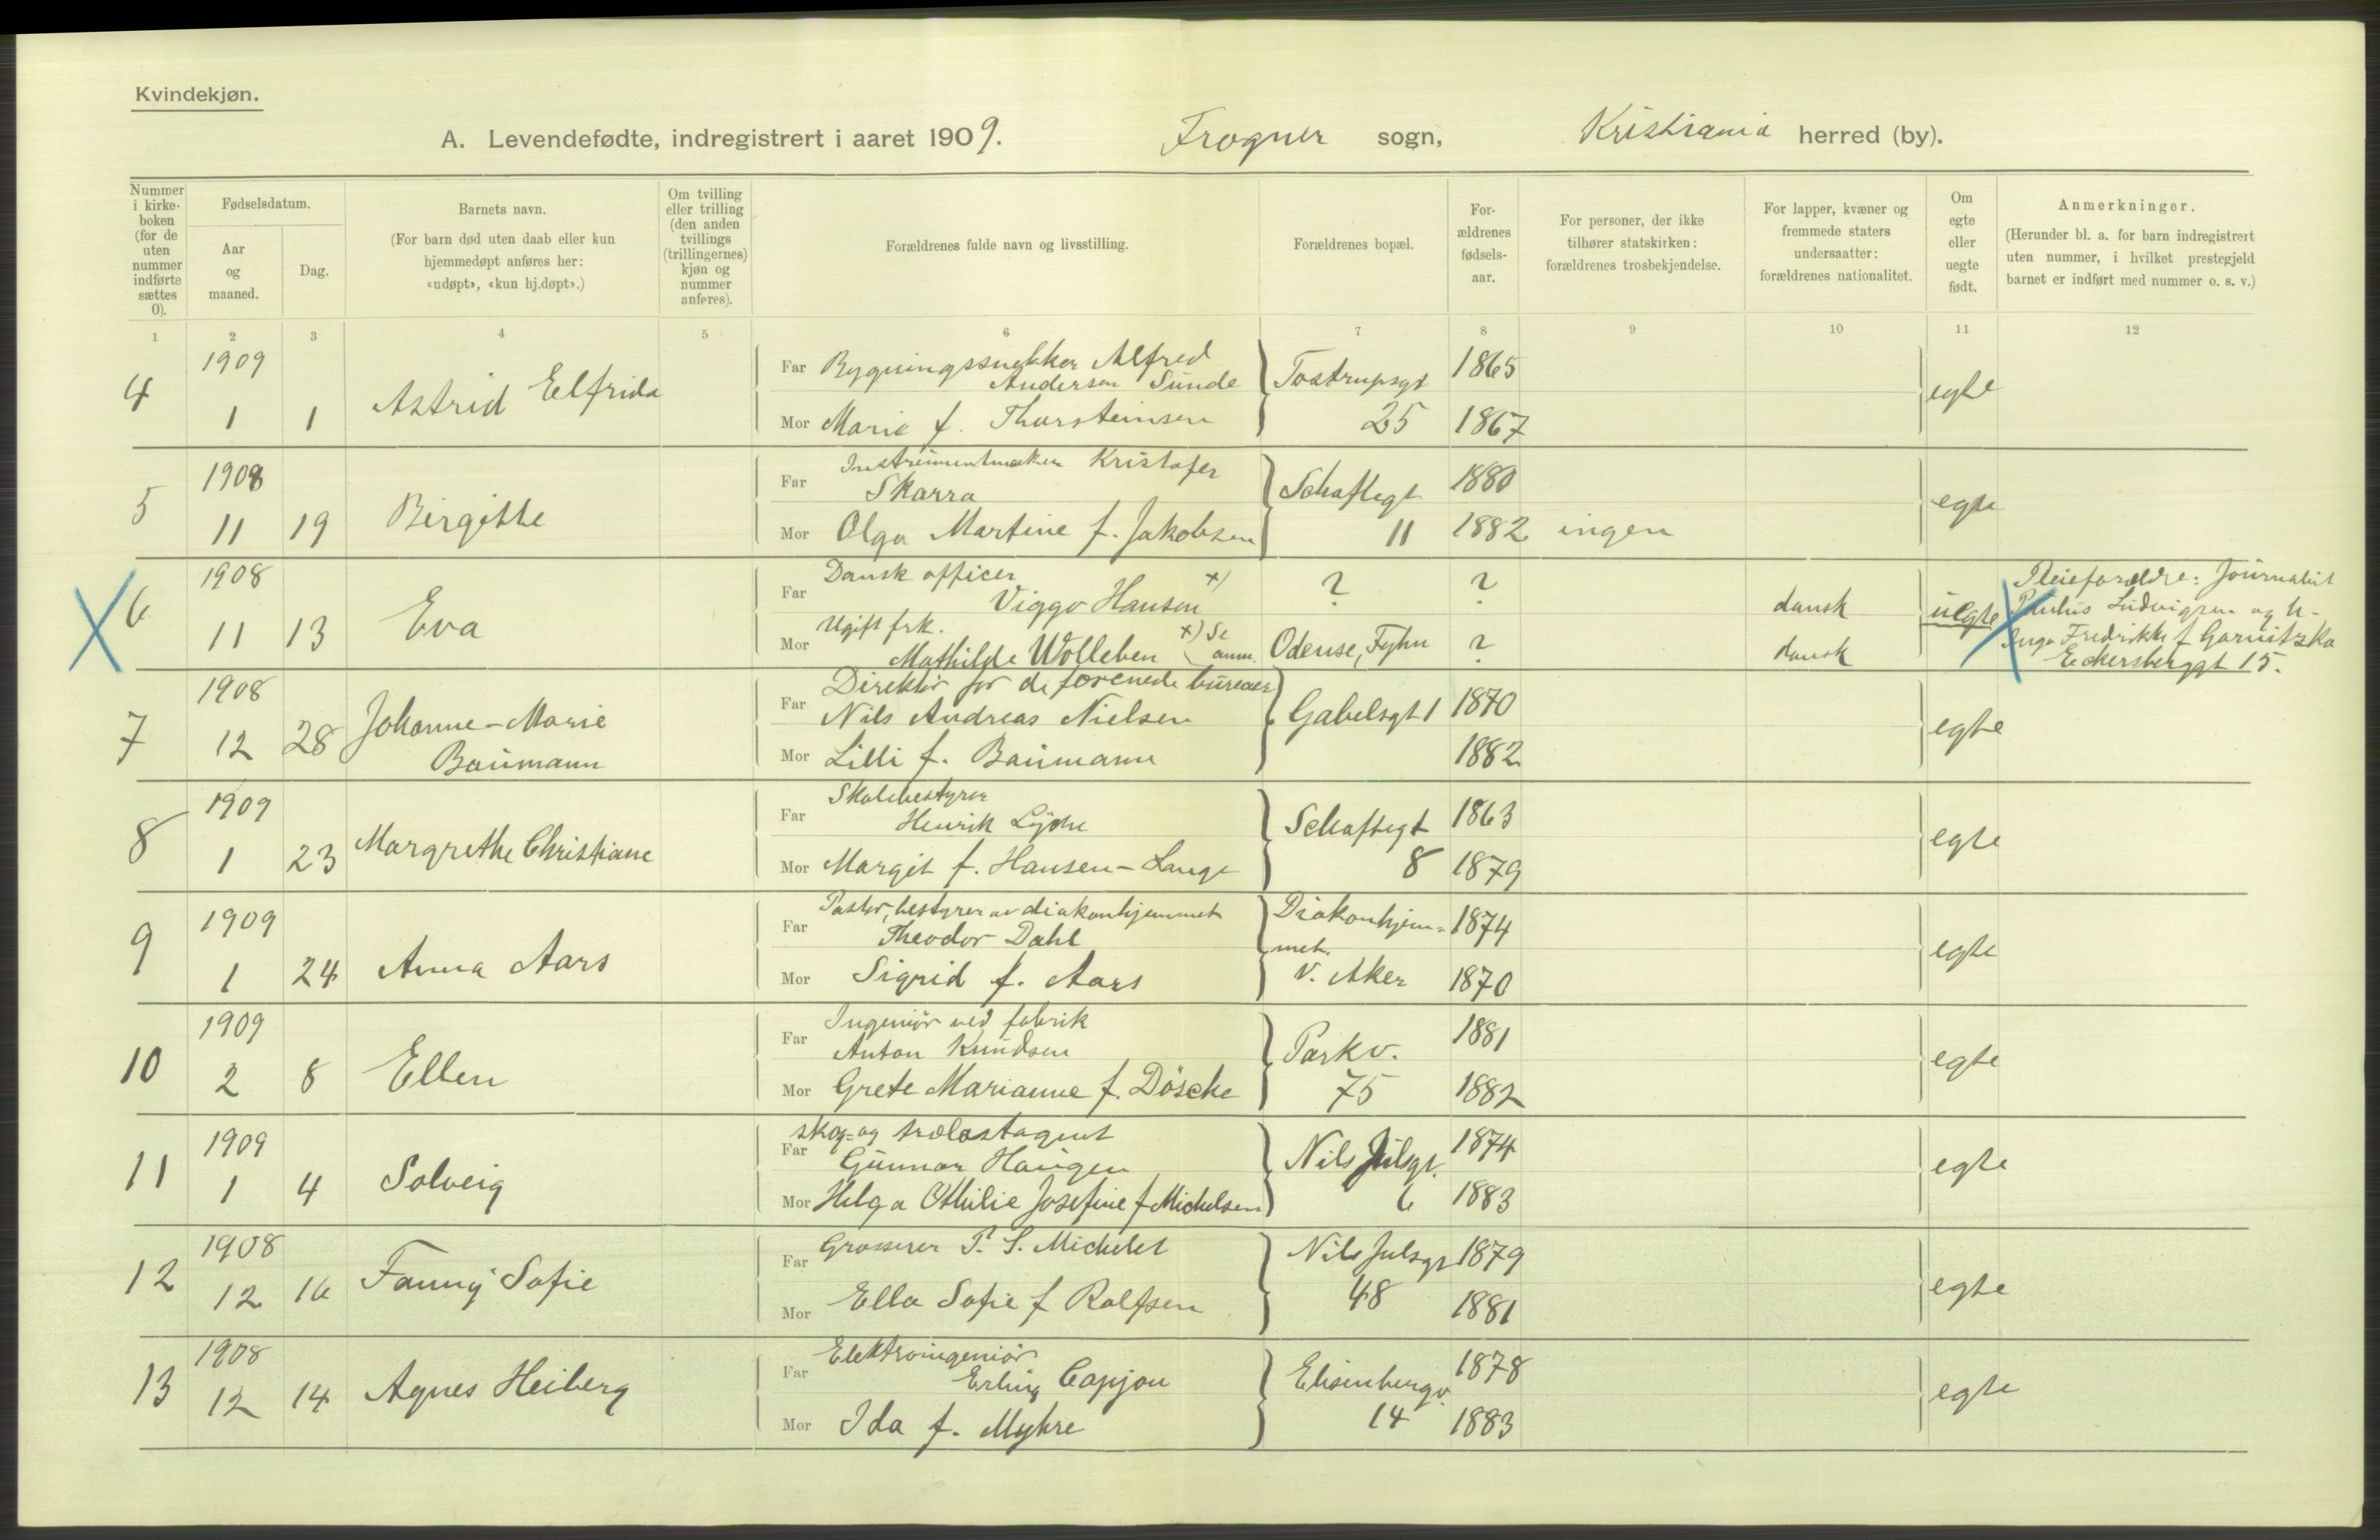 Kvindekjøn.
A. Levendefødte, indregistrert i aaret 1909. Frogner sogn, Kristiania herred (by).
Nummer i kirke-boken (for de uten nummer indførte sættes 0).
Fødselsdatum.
Aar og maaned.
Dag.
Barnets navn.
(For barn død uten daab eller kun hjemmedøpt anføres her: «udøpt», «kun hj.døpt».)
Om tvilling eller trilling (den anden tvillings (trillingernes) kjøn og nummer anføres).
Forældrenes fulde navn og livsstilling.
Forældrenes bopæl.
For-ældrenes fødsels-aar.
For personer, der ikke tilhører statskirken: forældrenes trosbekjendelse.
For lapper, kvæner og fremmede staters undersaatter: forældrenes nationalitet.
Om egte eller uegte født.
Anmerkninger.
(Herunder bl. a. for barn indregistrert uten nummer, i hvilket prestegjeld barnet er indført med nummer o. s. v.)
1 2 3 4 5 6 7 8 9 10 11 12
4 1909 1 1 Astrid Elfrida
Far Bygningssnekker Alfred Andersen Sunde Tostrupsgt 1865 egte
Mor Marie f. Thorsteinsen 25 1867
5 1908 11 19 Birgitte
Far Instrumentmaker Kristofer Skarra Schaftegt 1880 egte
Mor Olga Martine f. Jakobsen 11 1882 ingen
X 6 1908 11 13 Eva
Far Dansk officer Viggo Hansen x) ? ? dansk uegte
Mor Ugift frk. Mathilde Wolleben x) Se anm. Odense, Fyhn ? dansk
Pleieforældre: Journalist
Ludvigsen og h.
Inga Fredrikke f Garnitzka
Eckersberggt 15.
7 1908 12 28 Johanne-Marie Baumann
Far Direktør for de forenede bureaer Nils Andreas Nielsen Gabelsgt 1 1870 egte
Mor Lilli f. Baumann 1882
8 1909 1 23 Margrethe Christiane
Far Skolebestyrer Henrik Lyche Schaftegt 1863 egte
Mor Margit f. Hansen-Lange 8 1879
9 1909 1 24 Anna Aars
Far Pastor, bestyrer av diakonhjemmet Theodor Dahl Diakonhjem-met. 1874 egte
Mor Sigrid f. Aars V. Aker 1870
10 1909 2 8 Ellen
Far Ingeniør ved fabrik Anton Knudsen Parkv. 1881 egte
Mor Grete Marianne f. Døscke 75 1882
11 1909 1 4 Solveig
Far skog- og trælastagent Gunnar Haugen Nils Julsgt. 1874 egte
Mor Helga Othilie Josefine f Mickelsen 6 1883
12 1908 12 16 Fanny Sofie
Far Grosserer P. S. Michelet Nils Julsgt 1879 egte
Mor Ella Sofie f Rolfsen 48 1881
13 1908 12 14 Agnes Heiberg
Far Elektroingeniør Erling Capjon Elisenbergv. 1878 egte
Mor Ida f. Myhre 14 1883